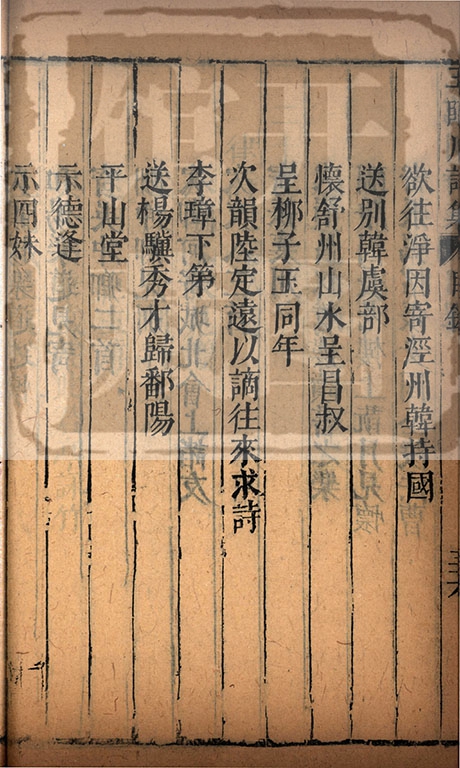 王臨川詩集 目錄
欲往淨因寄涇州韓持國
送別韓虞部
懷舒州山水呈昌叔
呈柳子玉同年
次韻陸定遠以謫往來求詩
李璋下第
送楊驥秀才歸鄱陽
平山堂
示德逢
示四妹